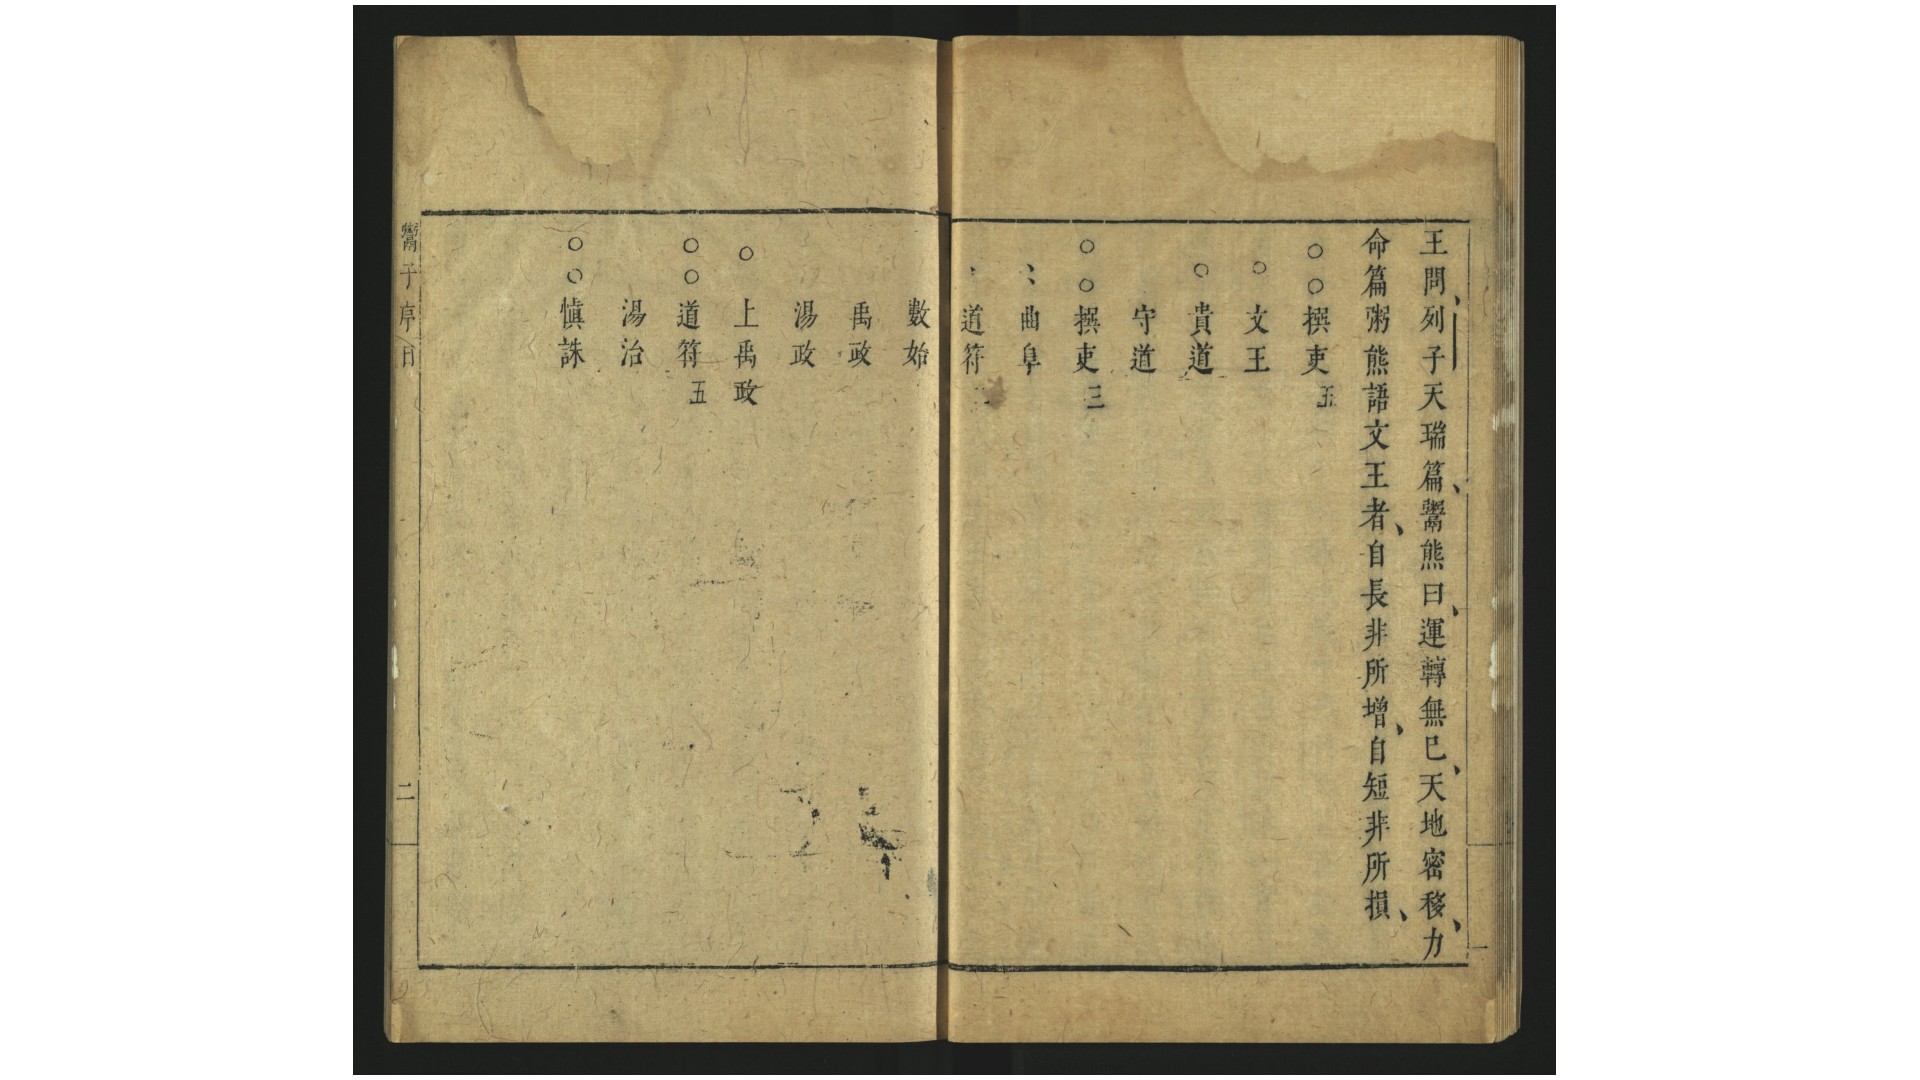 王問列子天瑞篇鬻熊曰運轉無已天地密移力
命篇粥熊語文王者自長非所增自短非所損
○○撰吏五
○文王
○貴道
守道
○○撰吏三
、、曲阜
、道符二
數始
禹政
湯政
○上禹政
○○道符五
湯治
○○慎誅
鬻子序目
二